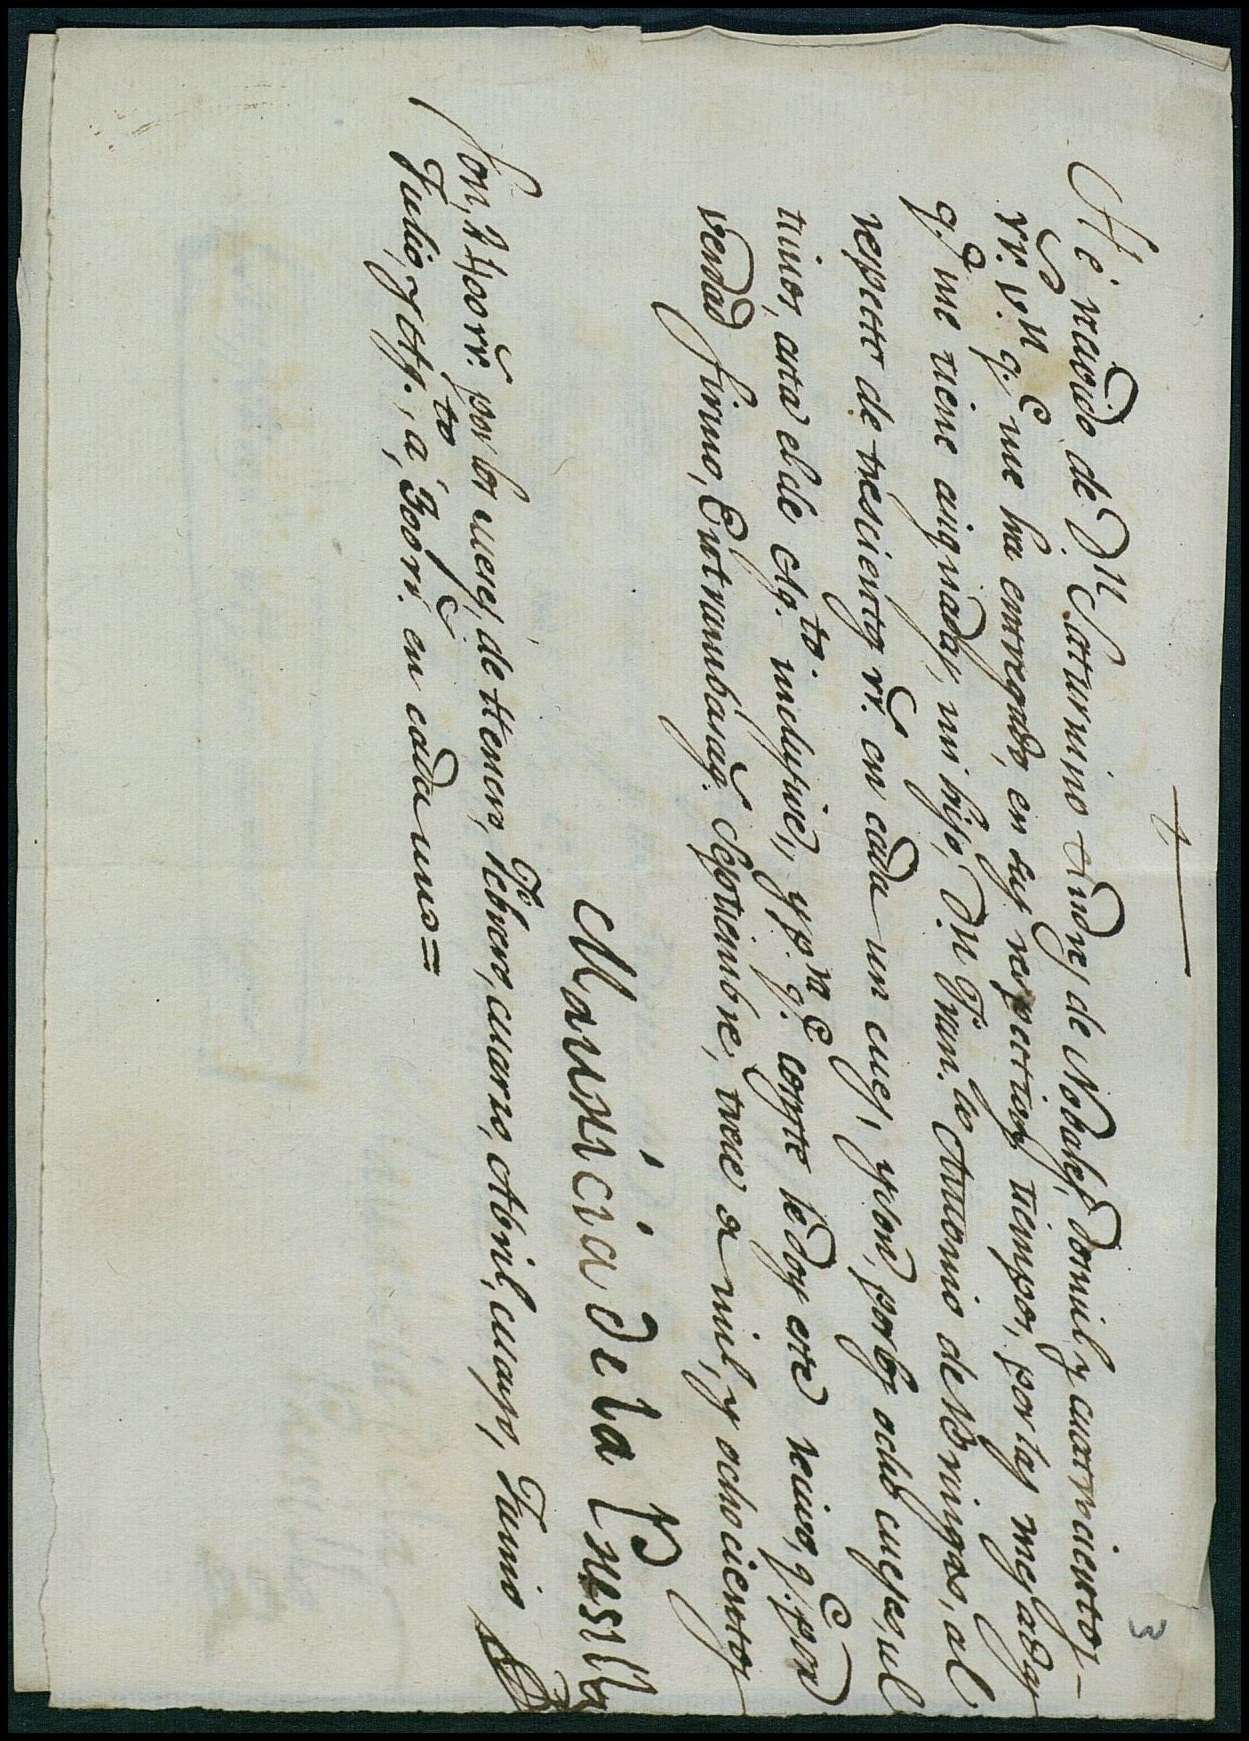 3
He recivido de Dn. Saturnino Andres de Nobales, dos mil y quatrocientos
rr.s v.n q.e me ha entregado, en sus respectivos tiempos, por las mesadas
q.e me tiene asignadas, mi hijo, Dn. Fran.co Antonio de Bringas, al
respecto de trescientos rr.s en cada un mes, y son, por los ocho meses, ul
timos, asta el de Ag.to inclusive, y p.ra q.e conste le doy este recivo, q.e por
verdad firmo, Entrambasag.s Septiembre, trece de mil, y ochocientos
Mauricia de la Presilla
Son, 2400 rr.s por los meses, de Henero, Febrero, Marzo, Abril, Mayo, Junio
Julio, y Ag.to, á, 300 rr.s en cada uno=